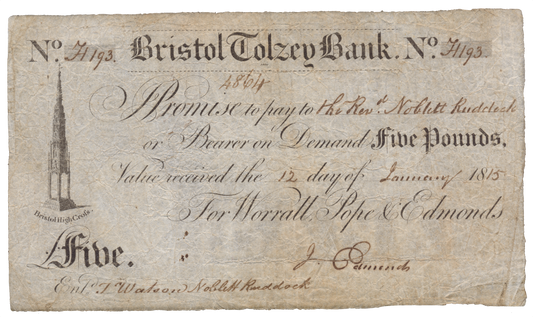 No. H193. Bristol Tolzey Bank. No. H193.
4864
I Promise to pay to the Revd. Noblett Ruddock
or Bearer on Demand Five Pounds,
Value received the 12 day of January 1815
For Worrall, Pope & Edmonds
Bristol High Cross
£Five.
J. Edmonds
Entd. T Watson Noblett Ruddock